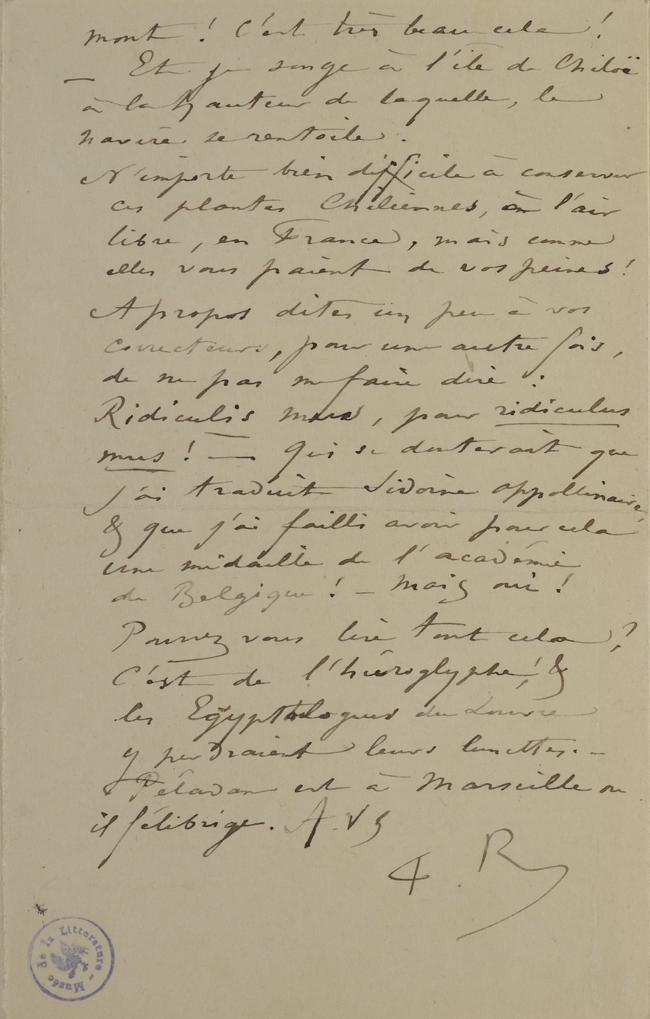 mont ! C'est très beau cela !
— Et je songe à l'île de Chiloë
à la hauteur de laquelle, le
navire se rentoile.
N'importe bien difficile à conserver
ces plantes Chiliennes, en l'air
libre, en France, mais comme
elles vous paient de vos peines !
A propos dites un peu à vos
correcteurs, pour une autre fois,
de ne pas me faire dire :
Ridiculis mus, pour ridiculus
mus ! — Qui se douterait que
j'ai traduit Sidoine Appollinaire,
& que j'ai failli avoir pour cela
une médaille de l'académie
de Belgique ! — Mais oui !
Pourrez vous lire tout cela ?
C'est de l'hiéroglyphe ! &
les Egyptologues du Louvre
y perdraient leurs lunettes. —
Péladan est à Marseille où
il félibrige. A. V
F. R
Musée de la Littérature